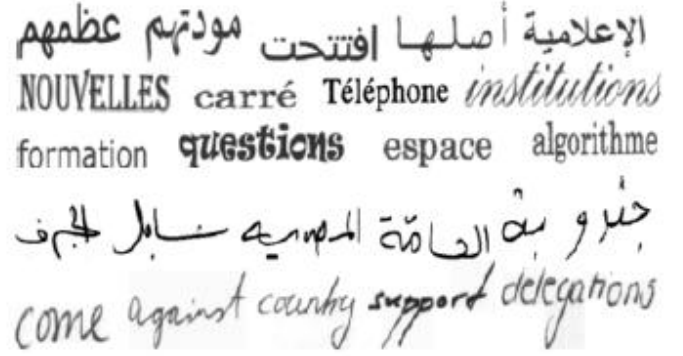 الإعلامية أصلها افتتحت مودتهم عظمهم
NOUVELLES carré Téléphone institutions
formation questions espace algorithme
العامّة المصرية
come against country support delegations